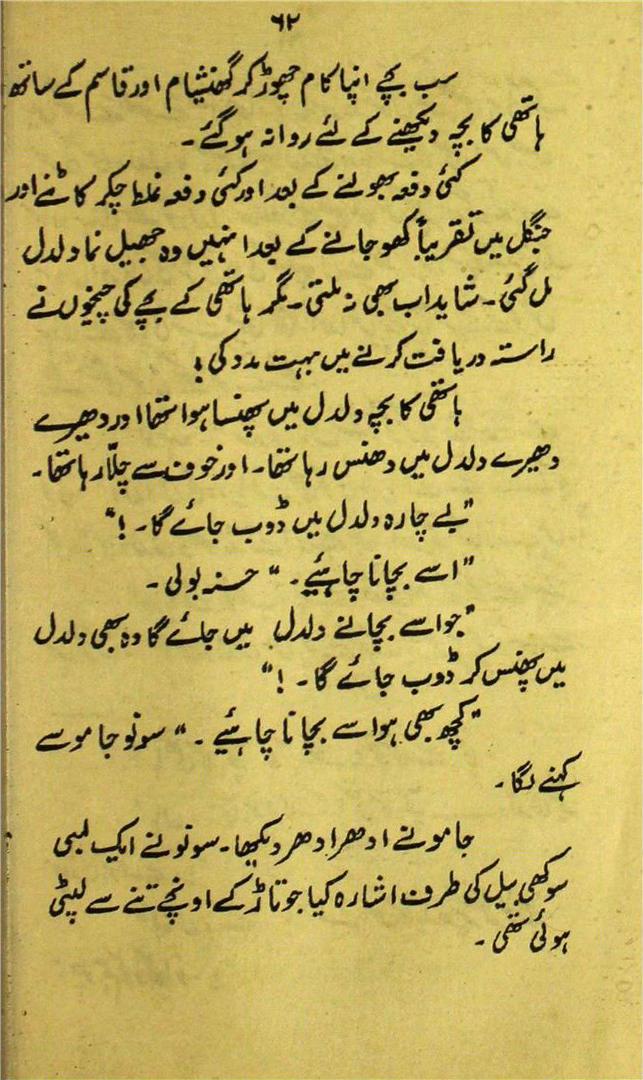 ۶۲
سب بچے اپنا کام چھوڑ کر گھنشیام اور قاسم کے ساتھ
ہاتھی کا بچہ دیکھنے کے لئے روانہ ہو گئے۔
کئی دفعہ بھولنے کے بعد اور کئی دفعہ غلط چکر کاٹنے اور
جنگل میں تقریباً کھو جانے کے بعد انہیں وہ جھیل نما دلدل
مل گئی۔ شاید اب بھی نہ ملتی۔ مگر ہاتھی کے بچے کی چیخوں نے
راستہ دریافت کرنے میں بہت مدد کی!
ہاتھی کا بچہ دلدل میں پھنسا ہوا تھا اور دھیرے
دھیرے دلدل میں دھنس رہا تھا۔ اور خوف سے چلّا رہا تھا۔
"بے چارہ دلدل میں ڈوب جائے گا۔!"
"اسے بچانا چاہئیے۔" حسنہ بولی۔
"جو اسے بچانے دلدل میں جائے گا وہ بھی دلدل
میں پھنس کر ڈوب جائے گا۔!"
"کچھ بھی ہو اسے بچانا چاہئیے۔" سونو جامو سے
کہنے لگا۔
جامو نے ادھر ادھر دیکھا۔ سونو نے ایک لمبی
سوکھی بیل کی طرف اشارہ کیا جو تاڑ کے اونچے تنے سے لپٹی
ہوئی تھی۔